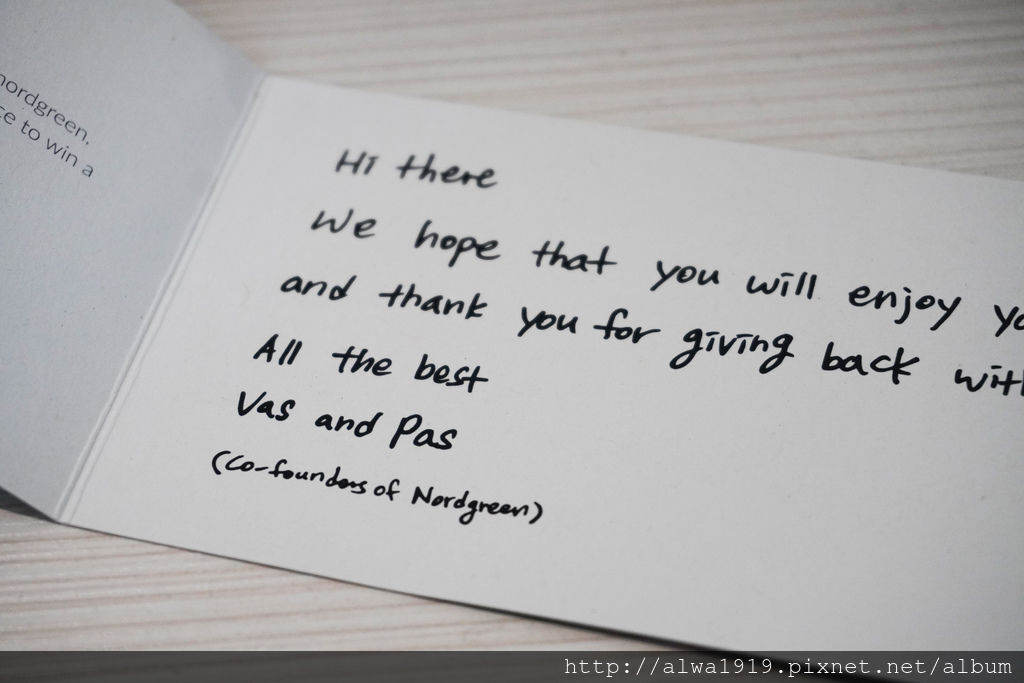 nordgreen,
to win a
Hi there
We hope that you will enjoy
and thank you for giving back
All the best
Vas and Pas
(Co-founders of Nordgreen)
http://alwa1919.pixnet.net/album